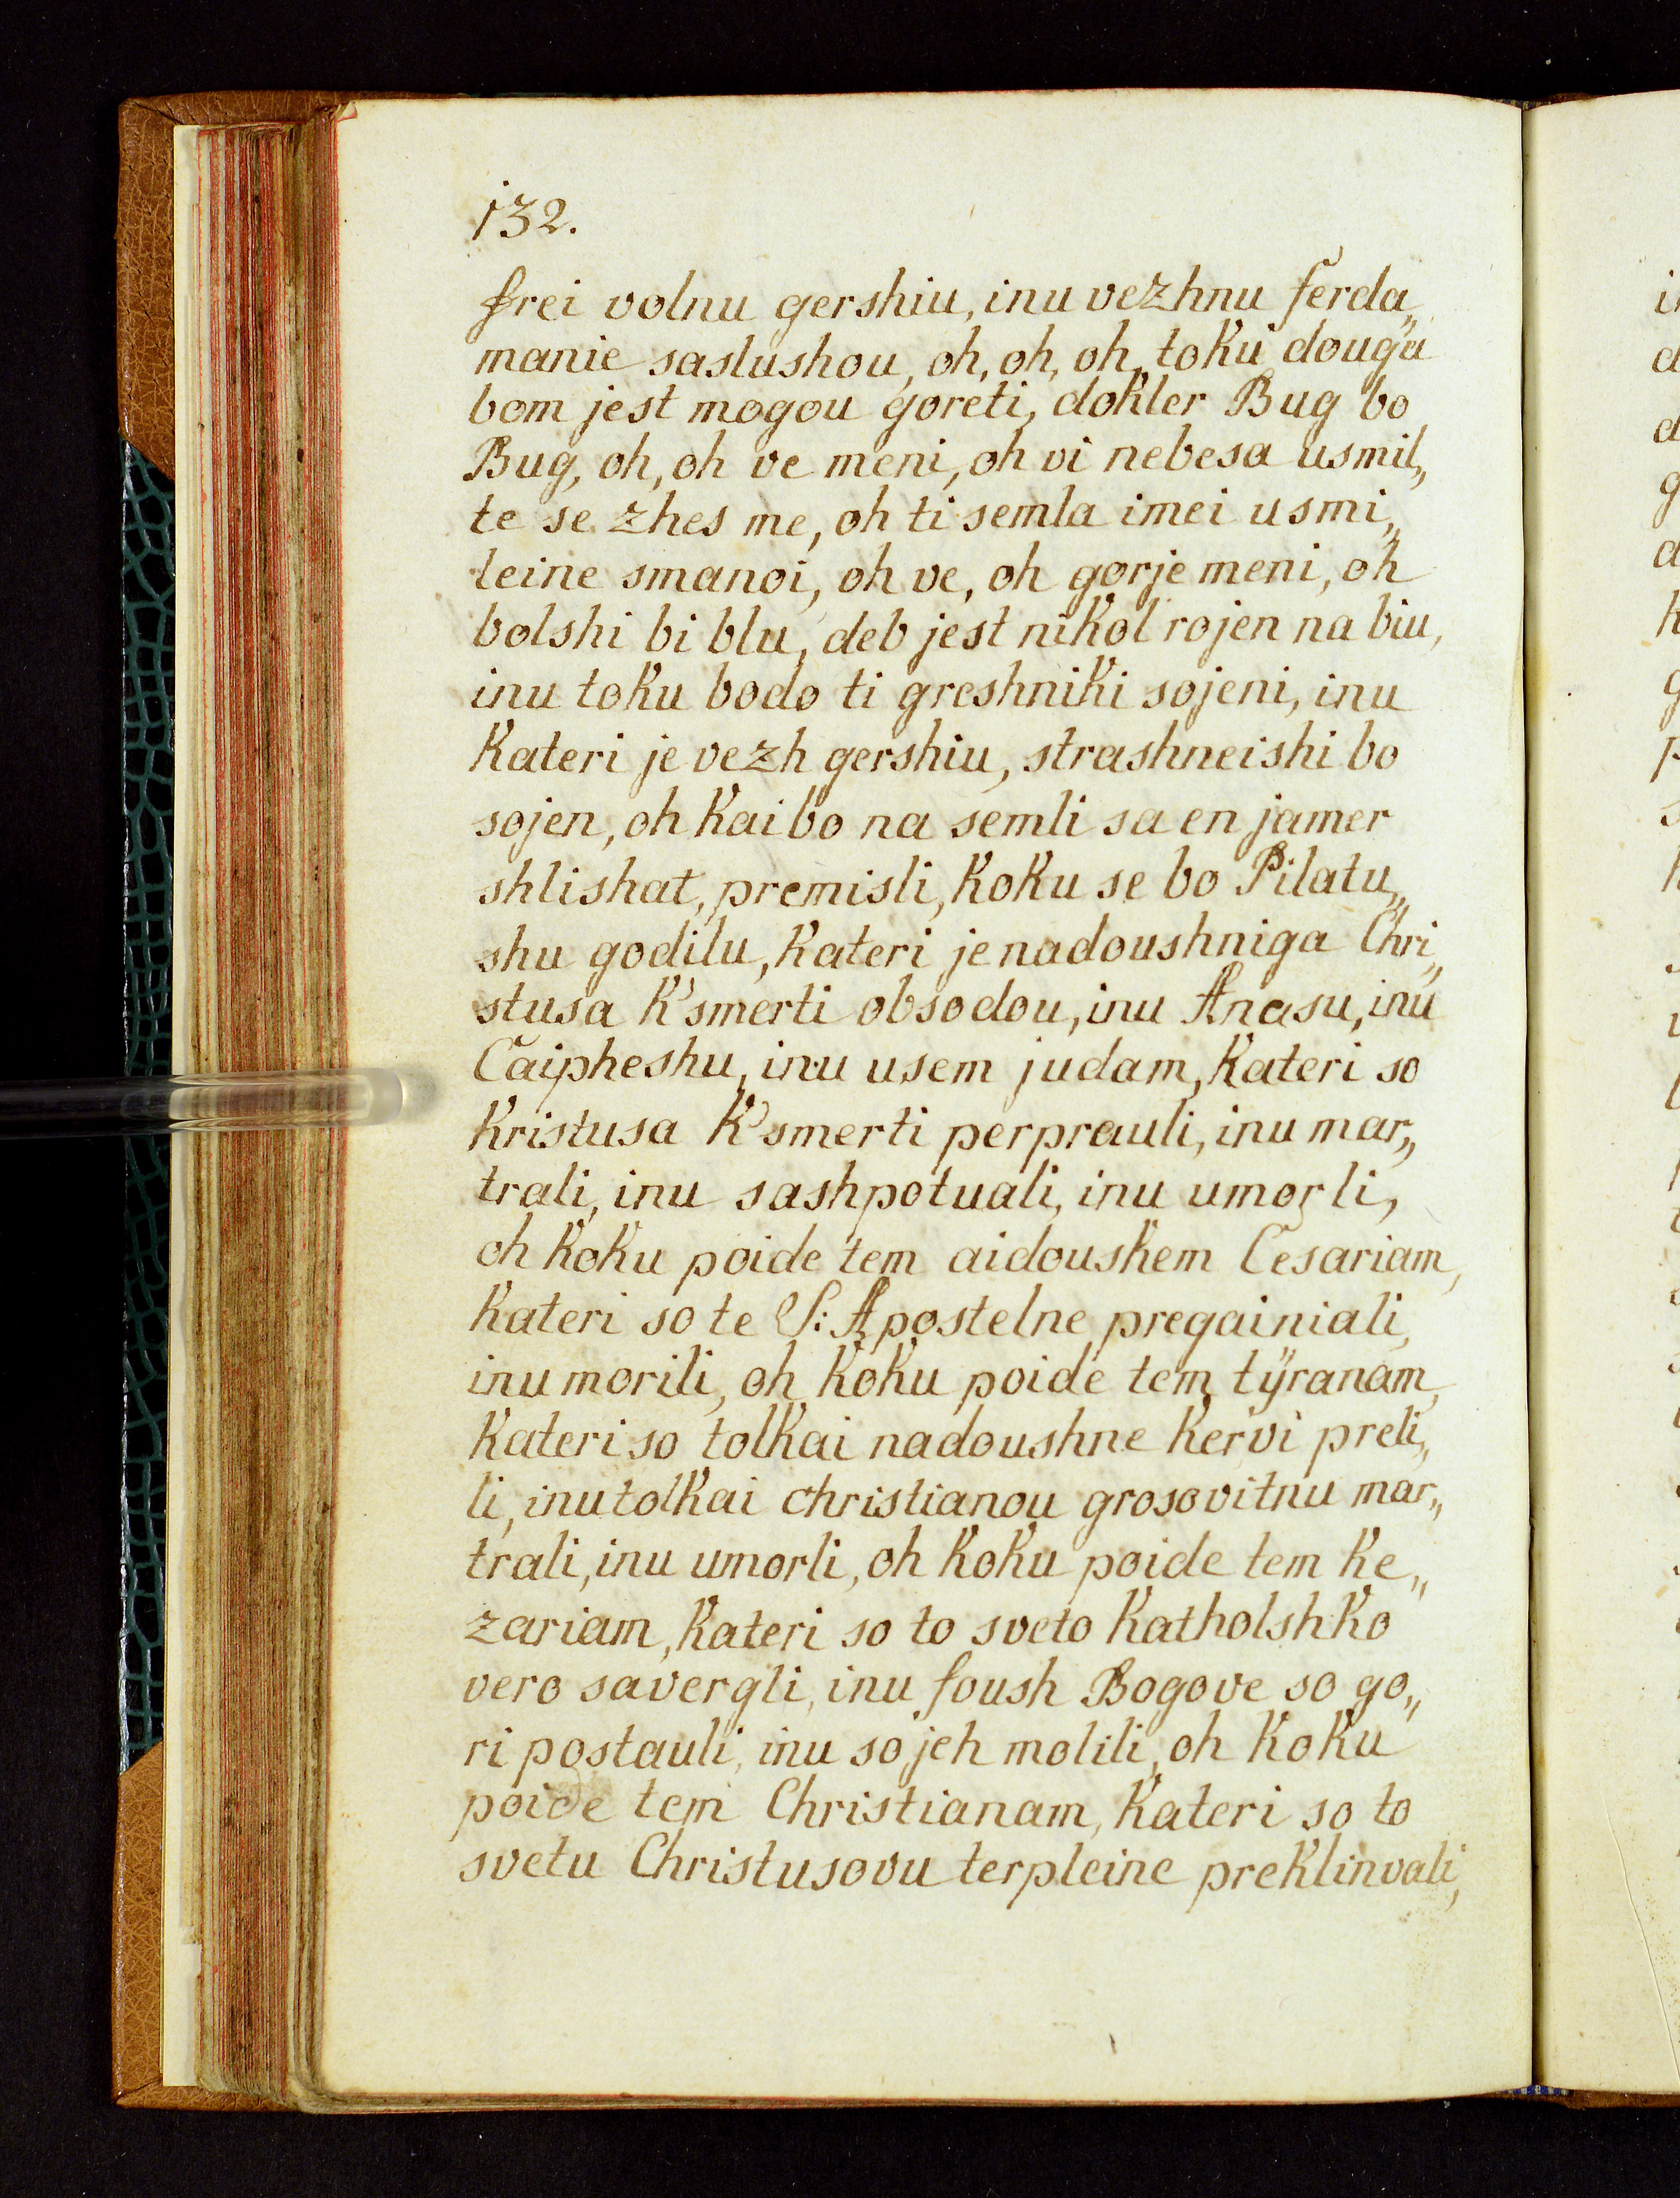 132.
frei volnu gershiu, inu vezhnu ferda„
manie saslushou, oh, oh, oh, toku dougu
bom jest mogou goreti, dokler Bug bo
Bug, oh, oh ve meni, oh vi nebesa usmil„
te se zhes me, oh ti semla imei usmi„
leine smanoi, oh ve, oh gorje meni, oh
bolshi bi blu, deb jest nikol rojen na biu,
inu toku bodo ti greshniki sojeni, inu
Kateri je vezh gershiu, strashneishi bo
sojen, oh kai bo na semli sa en jamer
shlishat, premisli, koku se bo Pilatu„
shu godilu, kateri je nadoushniga Chri„
stusa k'smerti obsodou, inu Anasu, inu
Caipheshu, inu usem judam, kateri so
Kristusa k'smerti perprauli, inu mar„
trali, inu sashpotuali, inu umorli,
oh koku poide tem aidoushem Cesariam,
Kateri so te S: Apostelne pregainiali,
inu morili, oh koku poide tem tÿranam,
Kateri so tolkai nadoushne kervi preli„
li, inu tolkai christianou grosovitnu mar„
trali, inu umorli, oh koku poide tem ke„
zariam, kateri so to sveto katholshko
vero savergli, inu foush Bogove so go„
ri postauli, inu so jeh molili, oh koku
poide tem Christianam, kateri so to
svetu Christusovu terpleine preklinvali,